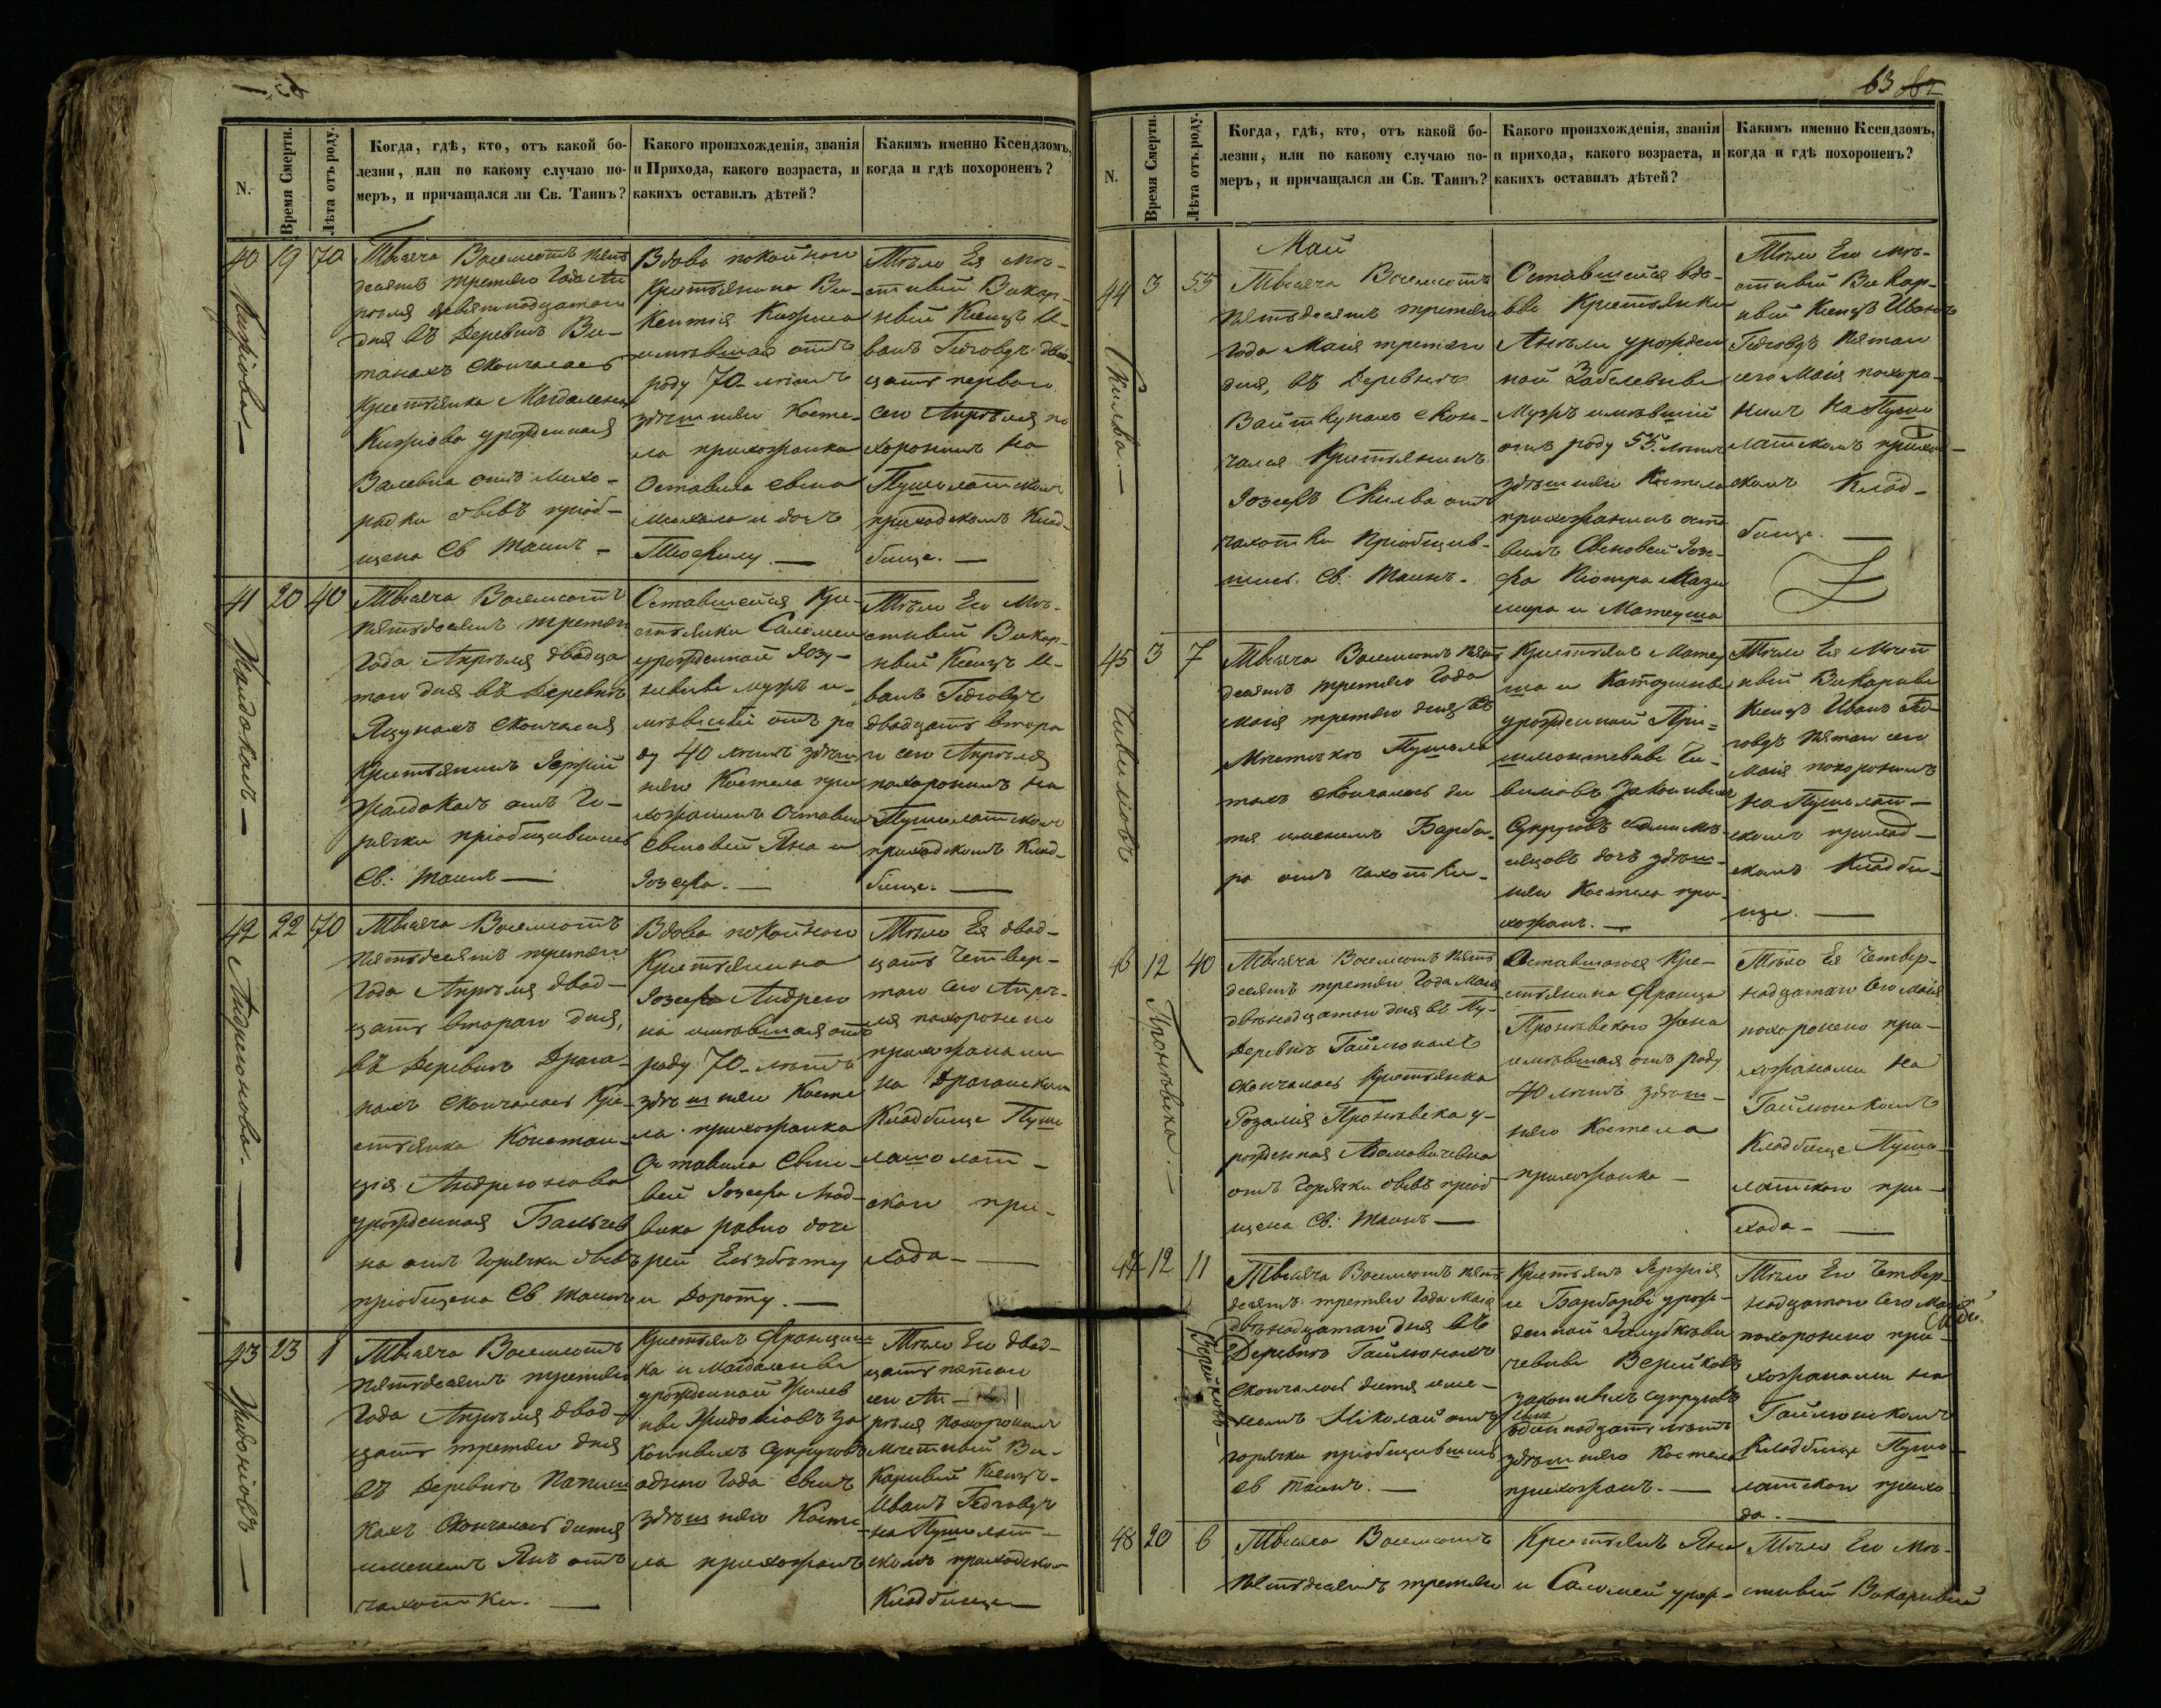 63 62
N.
Время Смерти.
Лѣта отъ роду.
Когда, гдѣ, кто, отъ какой бо-
лезни, или по какому случаю по-
меръ, и причащался ли Св. Таинъ?
Какого произхожденія, званія
и Прихода, какого возраста, и
какихъ оставилъ дѣтей?
Какимъ именно Ксендзомъ,
когда и гдѣ похороненъ?
40
19
70
Тысяча Восемсотъ пять
десятъ третяго Года Ап
рѣля девятнадцатого
дня въ Деревнѣ Ви-
танахъ скончалась
Крестьянка Магдалена
урожденная
отъ лихо-
радки бывъ пріоб-
щена Св Таинъ –
Вдова покойнаго
Крестьянина Ви-
кентія
имѣвшая отъ
роду 70 лѣтъ
здѣшняго Косте-
ла прихожанка
Оставила сына
Михала и дочь
Теофилу. —
Тѣло Ея мѣ-
стный Викар-
ный Ксендзъ И-
ванъ Гедговдъ двад
цать перваго
сего Апрѣля по
хоронилъ на
Пушолатскомъ
приходскомъ Клад-
бище. —
41
20
40
Жолдокасъ —
Тысяча Восемсотъ
пятьдесятъ третяго
Года Апрѣля двадца
таго дня въ Деревнѣ
Яцунахъ скончался
Крестьянинъ Іержій
Жолдокасъ отъ Го-
рячки пріобщившись
Св: Таинъ —
Оставшейся Кре-
стьянки Саломеи
урожденной
мужъ и-
мѣвшій отъ ро
ду 40 лѣтъ здѣш
няго Костела при
хожанинъ Оставилъ
сыновей Яна и
Іозефа. —
Тѣло Его мѣ-
стный Викар-
ный Ксендзъ И-
ванъ Гедговдъ
двадцать втора
го сего Апрѣля
похоронилъ на
Пушолатскомъ
приходскомъ Клад-
бище. —
42
22
70
Андрею­нова. —
Тысяча Восемсотъ
пятьдесятъ третяго
Года Апрѣля двад-
цать втораго дня,
въ Деревнѣ Драга-
нахъ скончалась Кре-
стьянка Констан-
ція Андреюнова
урожденная
на отъ Горячки бывъ
пріобщена Св Таинъ
Вдова покойнаго
Крестьянина
Іозефа Андрею
на имѣвшая отъ
роду 70 лѣтъ
здѣшняго Косте
ла прихожанка
Оставила сыно-
вей Іозефа Люд-
вика равно доче
рей Ельзбѣту
и Дороту. —
Тѣло Ея двад-
цать четвер-
таго сего Апрѣ-
ля похоронено
прихожанами
на
Кладбище
скаго при-
хода —
43
23
1
Жидоніовъ —
Тысяча Восемсотъ
пятьдесятъ третяго
Года Апрѣля двад-
цать третяго дня
въ Деревнѣ
кахъ скончалось дитя
именемъ Янъ отъ
чахотки. —
Крестьянъ Францыш
ка и Магдалены
урожденной
Жидоніовъ за
конныхъ Супруговъ
одного Года сынъ
здѣшняго Косте-
ла прихожанъ
Тѣло Его двад-
цать пятаго
сего Ап-
рѣля похоронилъ
мѣстный Ви-
карный Ксендзъ
Иванъ Гедговдъ
на Пушолат-
скомъ приходскомъ
Кладбище —
N.
Время Смерти.
Лѣта отъ роду.
Когда, гдѣ, кто, отъ какой бо-
лезни, или по какому случаю по-
меръ, и причащался ли Св. Таинъ?
Какого произхожденія, званія
и прихода, какого возраста, и
какихъ оставилъ дѣтей?
Какимъ именно Ксендзомъ,
когда и гдѣ похороненъ?
Май
44
3
55
Скилва. —
Тысяча Восемсотъ
пятьдесятъ третяго
Года Мая третяго
дня, въ Деревнѣ
Вайткунахъ скон-
чался Крестьянинъ
Іозефъ Скилва отъ
чахотки пріобщив-
шись Св: Таинъ.
Оставшейся вдо-
вы Крестьянки
Анели урожден
ной
Мужъ имѣвшій
отъ роду 55 лѣтъ
здѣшняго Костела
прихожанинъ оста
вилъ Сыновей Іозе-
фа Піотра Кази
мира и Матеуша
Тѣло Его мѣ-
стный Викар-
ный Ксендзъ Иванъ
Гедговдъ пятаго
сего Мая похоро-
нилъ на Пушо
латскомъ приход-
скомъ Клад-
бище. —
45
3
7
Тысяча Восемсотъ пять
десятъ третяго Года
мая третяго дня въ
Мѣстечкѣ Пушоло
тахъ скончалась ди
тя именемъ Барба-
ра отъ чахотки.
Крестьянъ Матеу
ша и Катарины
урожденной
законныхъ
Супруговъ
дочь здѣш-
няго Костела при-
хожанъ. —
Тѣло Ея мѣст
ный Викарный
Ксендзъ Иванъ Гед-
говдъ пятаго сего
Мая похоронилъ
на Пушолат-
скомъ приход-
скомъ Кладби-
ще. —
46
12
40
Проневска. —
Тысяча Восемсотъ пять
десятъ третяго Года Мая
двѣнадцатого дня въ
Деревнѣ Гайлюнахъ
скончалась Крестьянка
Розалія Проневска у-
рожденная Адамовичевна
отъ Горячки бывъ пріоб
щена Св: Таинъ —
Оставшагося Кре-
стьянина Франца
Проневского жена
имѣвшая отъ роду
40 лѣтъ здѣш-
няго Костела
прихожанка —
Тѣло Ея Четвер-
надцатаго сего Мая
похоронено при-
хожанами на
Гайлюнскомъ
Кладбище Пушо-
латскаго при-
хода —
47
12
11
Верейковъ —
Тысяча Восемсотъ пять
десятъ третяго Года Мая
двѣнадцатаго дня въ
Деревнѣ Гайлюнахъ
скончалось дитя име-
немъ Міколай отъ
горячки пріобщившись
св таинъ. —
Крестьянъ Іержія
и Барбары урож-
денной
Верейковъ
законныхъ супруговъ
сынъ
одинадцать лѣтъ
здѣшняго Костела
прихожанъ. —
Тѣло Его Четвер-
надцатого сего Мая
похоронено при-
хожанами на
Гайлюнскомъ
Кладбище Пушо-
латскаго прихо-
да. —
48
20
6
Тысяча Восемсотъ
пятьдесятъ третяго
Крестьянъ Яна
и Саломеи урож-
Тѣло Его мѣ-
стный Викарный